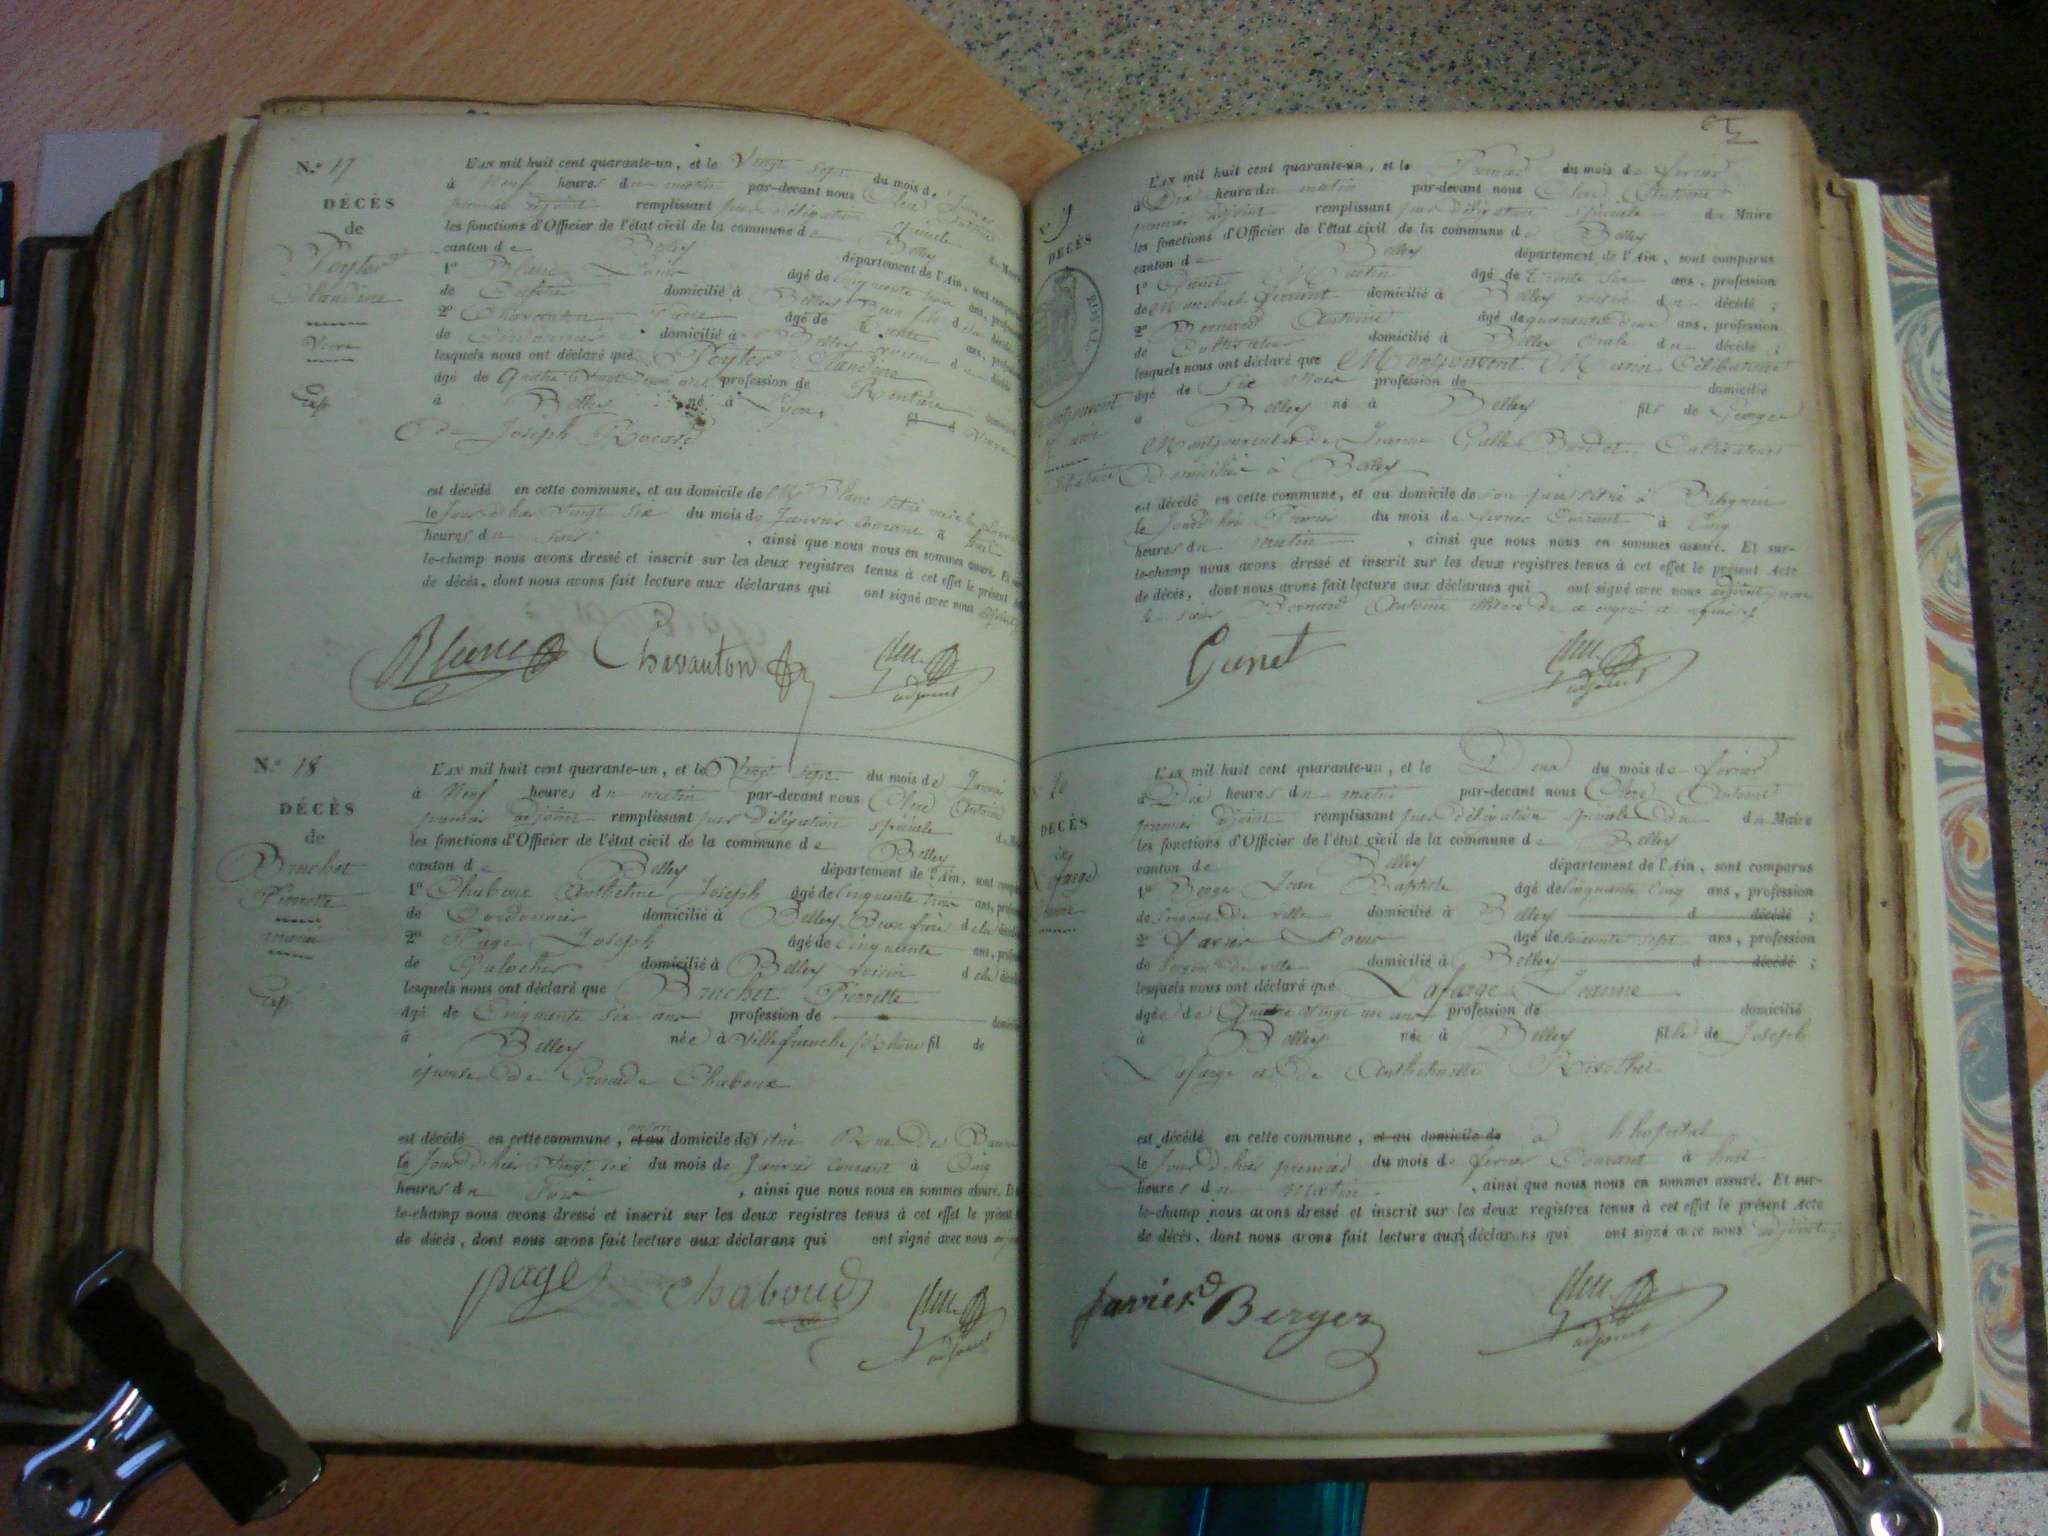 N.º 17
DÉCÈS
de
Blandine
Veuve
L'AN mil huit cent quarante-un, et le Vingt sept du mois de Janvier
à Neuf heures du matin par-devant nous Antoine
premier adjoint remplissant par délégation spéciale du Maire
les fonctions d'Officier de l'état civil de la commune de Belley
canton de Belley département de l'Ain, sont comparus
1º Blanc Louis âgé de Cinquante trois ans, profession
de domicilié à Belley
2º Chavanton âgé de trente ans, profession
de Cordonnier domicilié à Belley voisin d décédé
lesquels nous ont déclaré que Blandine
âgé de Quatre Vingt ans profession de Rentière domicilié
à Belley né à Lyon, Veuve
de Joseph
est décédé en cette commune, et au domicile de Mr Blanc
le Jour d'hier Vingt six du mois de Janvier courant à
heures du soir, ainsi que nous nous en sommes assuré. Et sur-
le-champ nous avons dressé et inscrit sur les deux registres tenus à cet effet le présent
de décès, dont nous avons fait lecture aux déclarans qui ont signé avec nous adjoint
Blanc Chavanton
adjoint
N.º 18
DÉCÈS
de
Bruchet
Pierrette
L'AN mil huit cent quarante-un, et le Vingt sept du mois de Janvier
à Neuf heures du matin par-devant nous Antoine
premier adjoint remplissant par délégation spéciale
les fonctions d'Officier de l'état civil de la commune de Belley
canton de Belley département de l'Ain, sont comparus
1º Chaboux Anthelme Joseph âgé de Cinquante trois ans, profession
de Cordonnier domicilié à Belley Beau frère de la décédé
2º Page Joseph âgé de Cinquante ans, profession
de Galocher domicilié à Belley voisin de la décédé
lesquels nous ont déclaré que Bruchet Pierrette
âgé de Cinquante six ans profession de domicilié
à Belley née à Villefranche Rhône fil de
épouse de Claude Chaboux
est décédé en cette commune, et au domicile de
le Jour d'hier Vingt six du mois de Janvier courant à Cinq
heures du Soir, ainsi que nous nous en sommes assuré. Et
le-champ nous avons dressé et inscrit sur les deux registres tenus à cet effet le présent
de décès, dont nous avons fait lecture aux déclarans qui ont signé avec nous
page Chaboud
adjoint
DÉCÈS
L'AN mil huit cent quarante-un, et le Premier du mois de février
à Dix heures du matin par-devant nous Antoine
premier adjoint remplissant par délégation spéciale du Maire
les fonctions d'Officier de l'état civil de la commune de Belley
canton de Belley département de l'Ain, sont comparus
1º Cunet Martin âgé de trente six ans, profession
de domicilié à Belley voisin du décédé ;
2º Bernard Antoine âgé de quarante deux ans, profession
de Cultivateur domicilié à Belley Oncle du décédé ;
lesquels nous ont déclaré que Célibataire
âgé de Six Mois profession de domicilié
à Belley né à Belley fils de George
et de Jeanne Cultivateurs
domiciliés à Belley
est décédé en cette commune, et au domicile de son père
le Jourd'hui Premier du mois de février Courant à Cinq
heures du matin, ainsi que nous nous en sommes assuré. Et sur-
le-champ nous avons dressé et inscrit sur les deux registres tenus à cet effet le présent Acte
de décès, dont nous avons fait lecture aux déclarans qui ont signé avec nous adjoint, non
le sieur Bernard Antoine
Cunet
adjoint
20
DÉCÈS
de
Lafarge
Jeanne
L'AN mil huit cent quarante-un, et le Deux du mois de février
à Dix heures du matin par-devant nous Antoine
premier adjoint remplissant par délégation spéciale du du Maire
les fonctions d'Officier de l'état civil de la commune de Belley
canton de Belley département de l'Ain, sont comparus
1º Berger Jean Baptiste âgé de Cinquante Cinq ans, profession
de Sergent de ville domicilié à Belley d décédé ;
2º Javier Louis âgé de soixante sept ans, profession
de Sergent de ville domicilié à Belley d décédé ;
lesquels nous ont déclaré que Lafarge Jeanne
âgée de Quatre vingt un ans profession de domicilié
à Belley née à Belley fille de Joseph
Lafarge et de Anthelmette
est décédé en cette commune, et au domicile de à l'hôpital
le Jour d'hier premier du mois de février Courant à huit
heures du Matin, ainsi que nous nous en sommes assuré. Et sur-
le-champ nous avons dressé et inscrit sur les deux registres tenus à cet effet le présent Acte
de décès, dont nous avons fait lecture aux déclarans qui ont signé avec nous adjoint
Javier Berger
adjoint